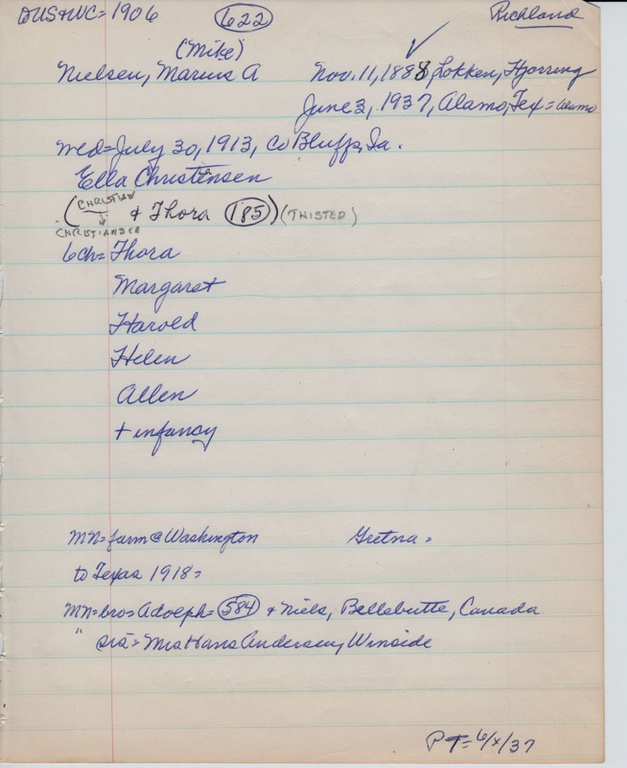 2US+WC=1906 622 Richland
(Mike)
Nielsen, Marius A Nov. 11, 1888, Lokken, Hjorring
June 3, 1937, Alamo, Tex = Alamo
wed = July 30, 1913, Co Bluffs, Ia.
Ella Christensen
(CHRISTIAN & Thora 185) (THISTED)
CHRISTIANSEN
6ch = Thora
Margaret
Harold
Helen
Allen
+ infancy
MN = farm @ Washington Gretna =
to Texas 1918 =
MN = bro = Adolph = 584 + Niels, Bellebutte, Canada
" sis = Mrs Hans Andersen, Winside
PT = 6/x/37